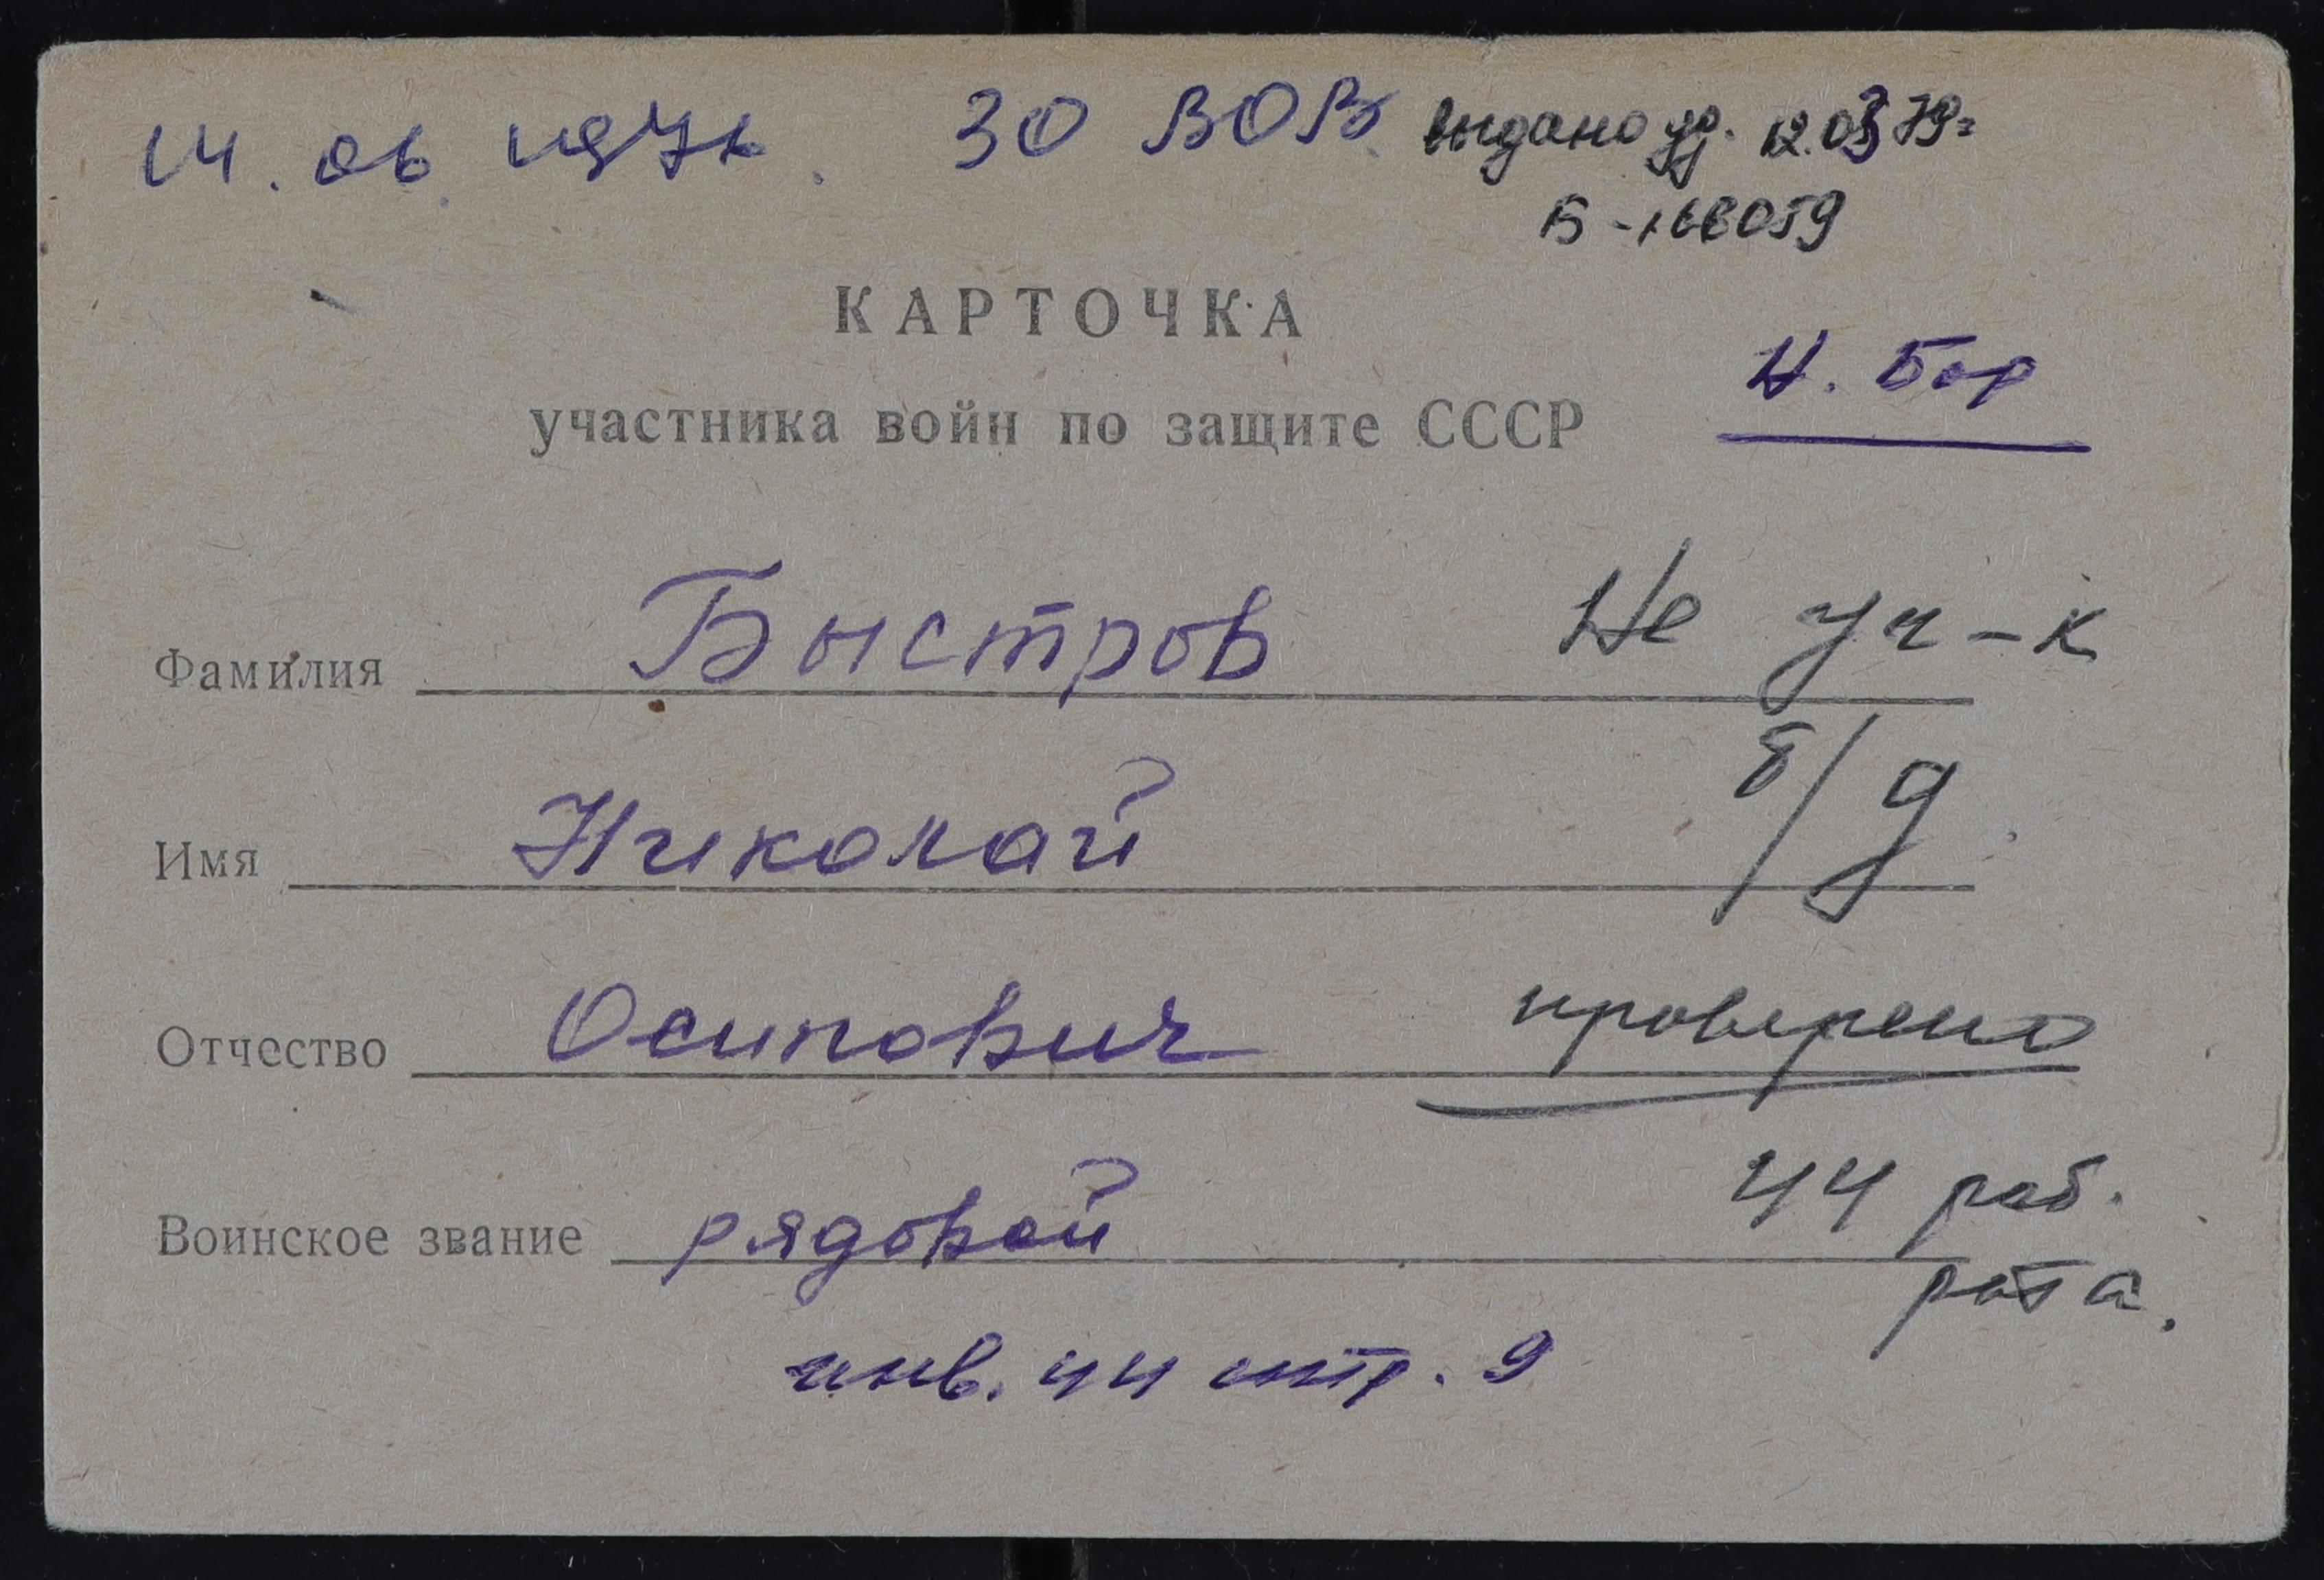 14.06.1976. 30 ВОВ. выдано уд. 12.03 79г
Б-166059
КАРТОЧКА
Н. Бор
участника войн по защите СССР
Фамилия Быстров Не уч-к
б/д
Имя Николай
Отчество Осипович проверено
Воинское звание рядовой 44 раб.
рота.
инв. 44 стр. 9